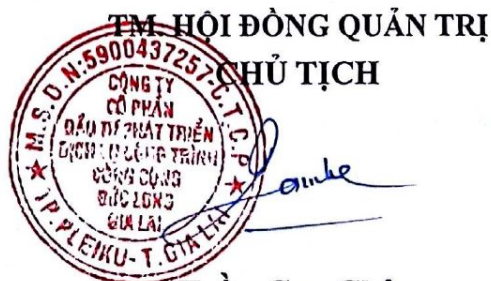 TM. HỘI ĐỒNG QUẢN TRỊ
CHỦ TỊCH
M.S.D.N:5900437257-C.T.C.P
CÔNG TY
CỔ PHẦN
ĐẦU TƯ PHÁT TRIỂN
DỊCH VỤ CÔNG TRÌNH
CÔNG CỘNG
ĐỨC LONG
GIA LAI
TP.PLEIKU - T.GIA LAI